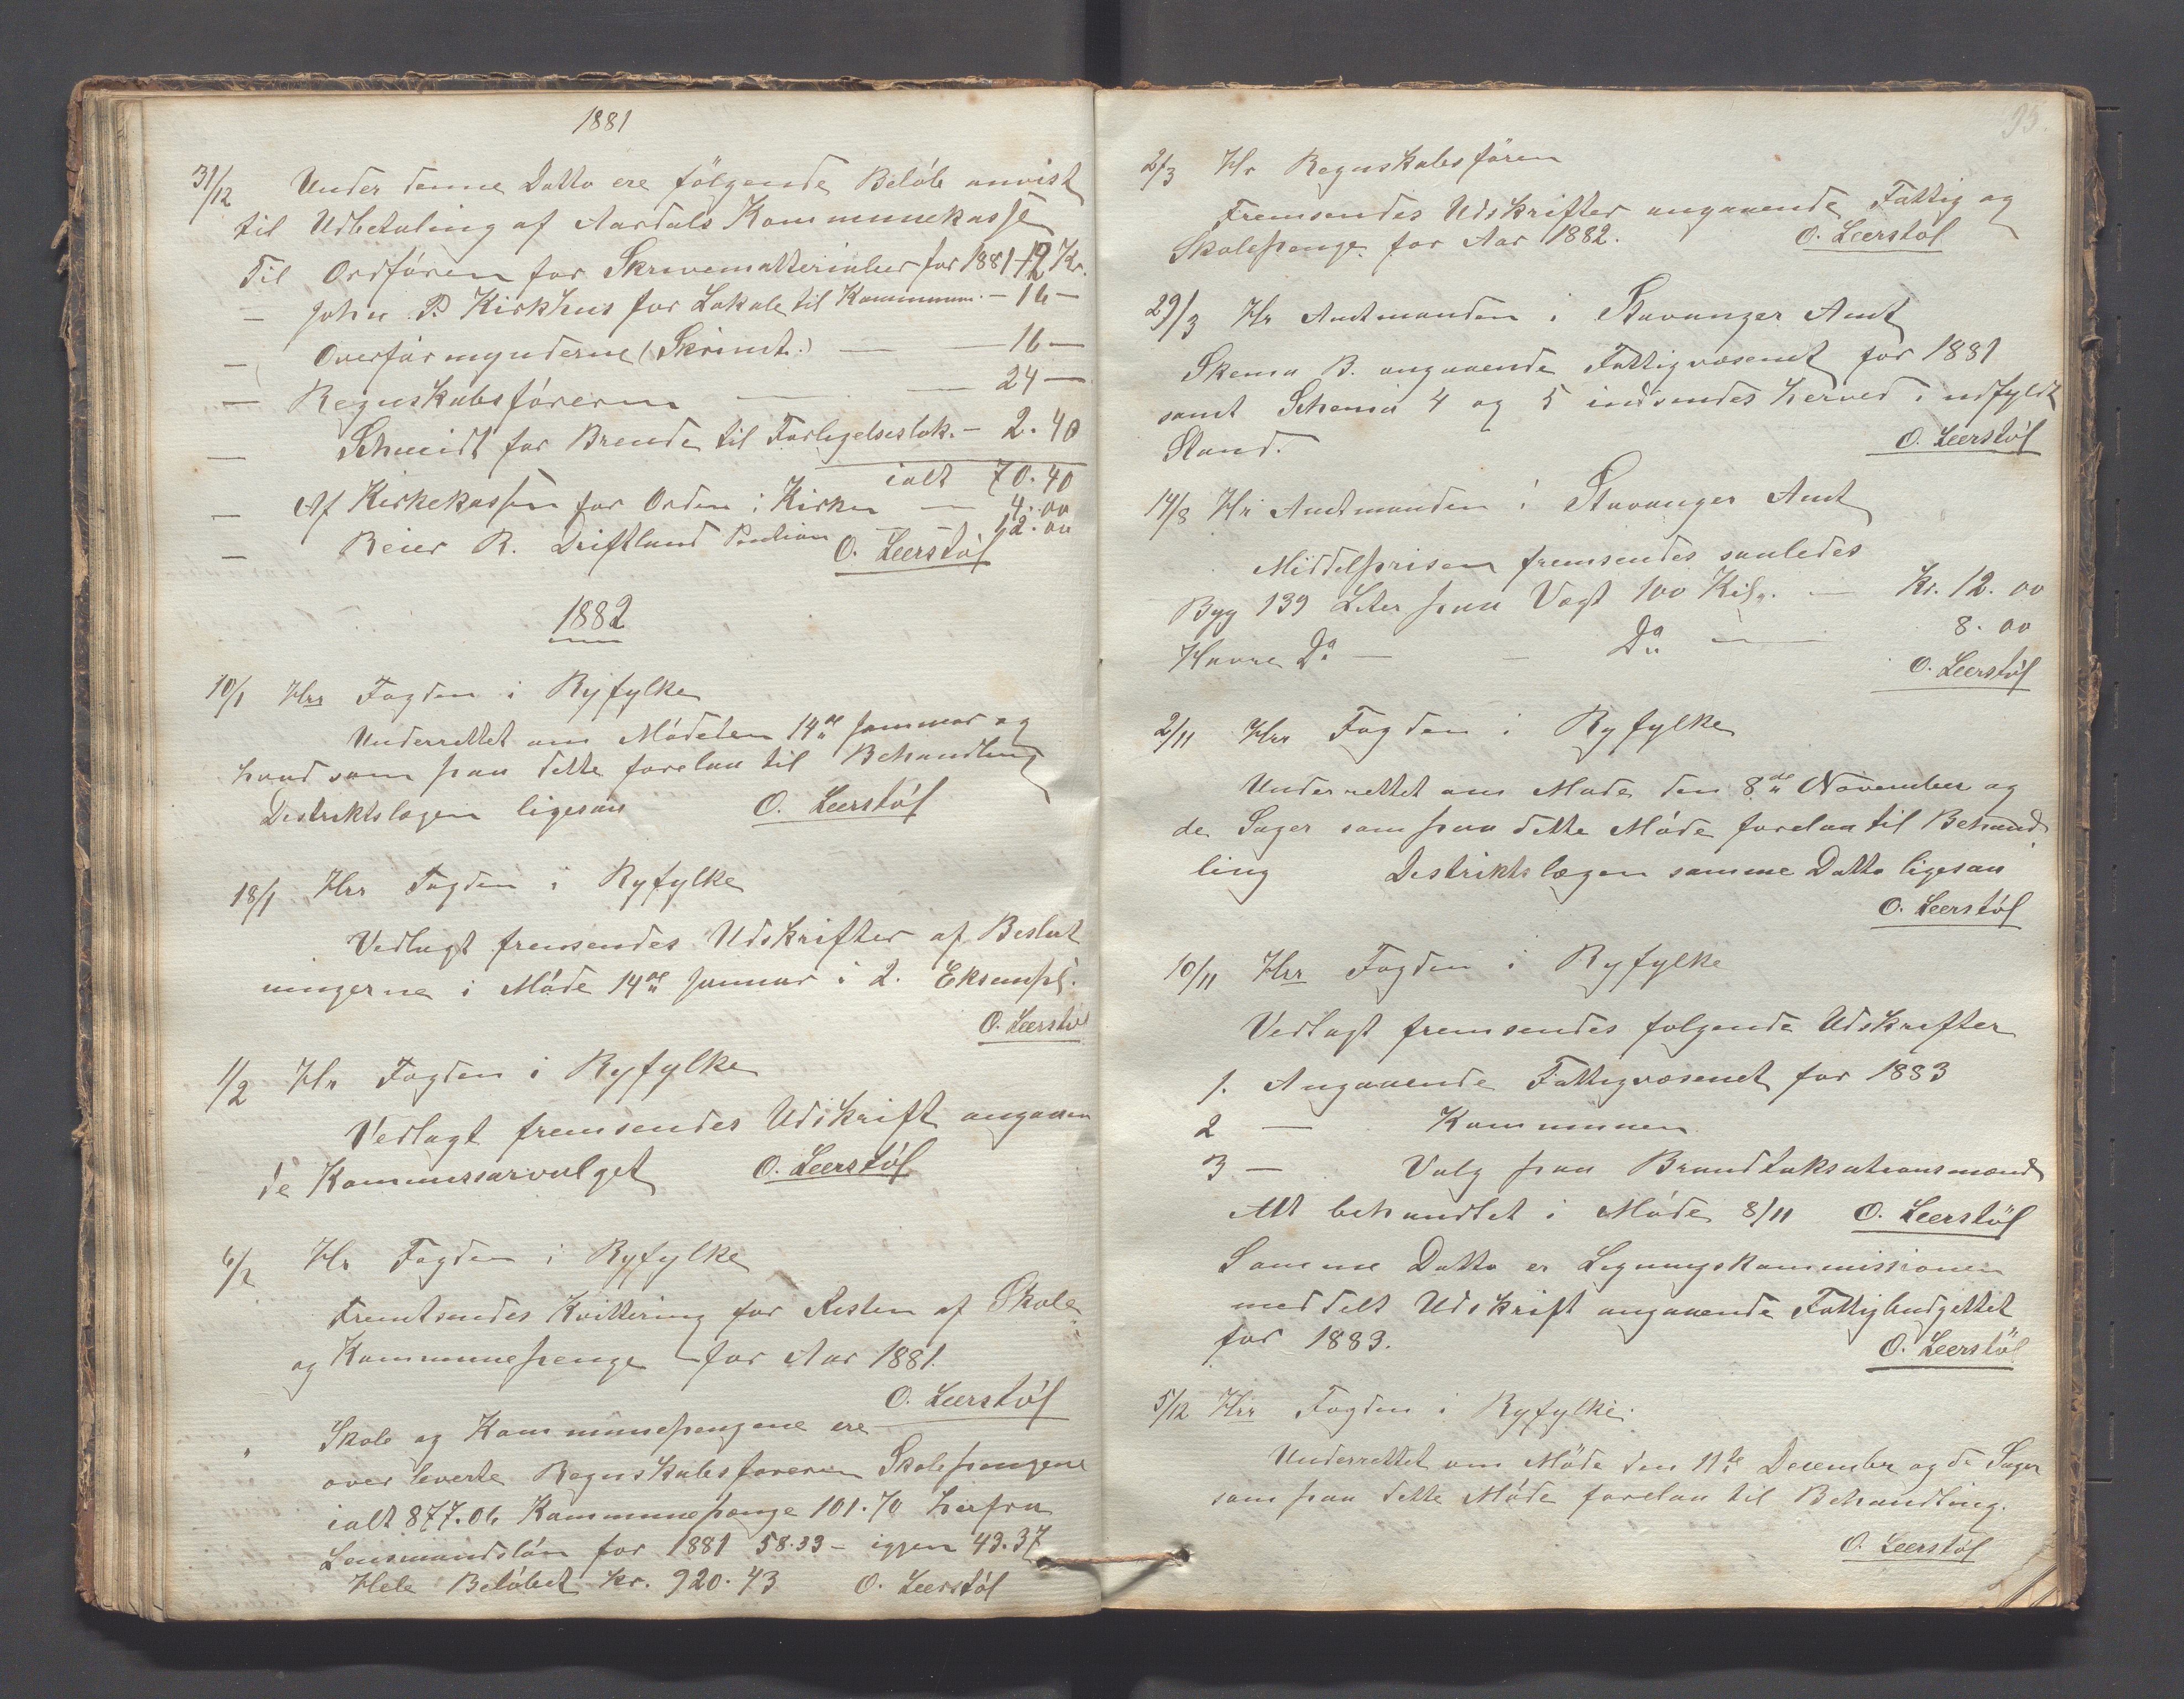 1881
31/12 Under denne Datto ere følgende Beløb anvist
til Udbetaling af Aardals Kommunekasse
Til Ordføren for Skrivematterialier for 1881 - 12 Kr.
— John P. Kirkhus for Lokale til Kommunen. - 16 -
— Overformynderne (Skrindt.) — — 16 —
— Regnskabsføreren — — 24 —
— Schmidt for Brende til Forligelseslok. - 2.40
ialt 70.40
— Af Kirkekassen for Orden i Kirken — 4.00
— Reier R. Driftland Pention — 12.00
O. Leerstøl
1882
10/1 Hrr Fogden i Ryfylke
Underrettet om Mødeten 14de Januar og
hvad som paa dette forelaa til Behandling
Distriktslægen ligesaa O. Leerstøl
18/1 Hrr Fogden i Ryfylke
Vedlagt fremsendes Udskrifter af Beslut
ningerne i Møde 14de Januar i 2. Eksempl.
O. Leerstøl
1/2 Hr Fogden i Ryfylke
Vedlagt fremsendes Udskrift angaaen
de Kommissarvalget O. Leerstøl
6/2 Hr Fogden i Ryfylke
Fremtsendes Kvittering for Resten af Skole
og Kommunepenge for Aar 1881.
O. Leerstøl
" Skole og Kommunepengene ere
over leverte Regnskabsføreren Skolepengene
ialt 877.06 Kommunepenge 101.70 herfra
Lensmandsløn for 1881 58.33 - igjen 43.37
Hele Beløbet kr. 920.43 O. Leerstøl
93.
2/3 Hr Regnskabsføren
Fremsendes Udskrifter angaaende Fattig og
Skolepenge for Aar 1882. O. Leerstøl
29/3 Hr Amtmanden i Stavanger Amt
Skema B. angaaende Fattigvæsenet for 1881
samt Schema 4 og 5 indsendes herved i udfyldt
Stand. O. Leerstøl
14/8 Hr Amtmanden i Stavanger Amt
Middelprisen fremsendes saaledes
Byg 139 Liter paa Vægt 100 Kilo. — Kr. 12.00
Havre Do — — Do — 8.00
O. Leerstøl
2/11 Hrr Fogden i Ryfylke
Underrettet om Møde den 8de November og
de Sager som paa dette Møde forelaa til Behand
ling Distriktslægen samme Datto ligesaa
O. Leerstøl
10/11 Hrr Fogden i Ryfylke
Vedlagt fremsendes følgende Udskrifter
1. Angaaende Fattigvæsenet for 1883
2 — Kommunen
3 — Valg paa Brandtaksationsmænd
Alt behandlet i Møde 8/11 O. Leerstøl
Samme Datto er Ligningskommissionen
meddelt Udskrift angaaende Fattigbudgettet
for 1883. O. Leerstøl
5/12 Hrr Fogden i Ryfylke.
Underrettet om Møde den 11te December og de Sager
som paa dette Møde forelaa til Behandling.
O. Leerstøl